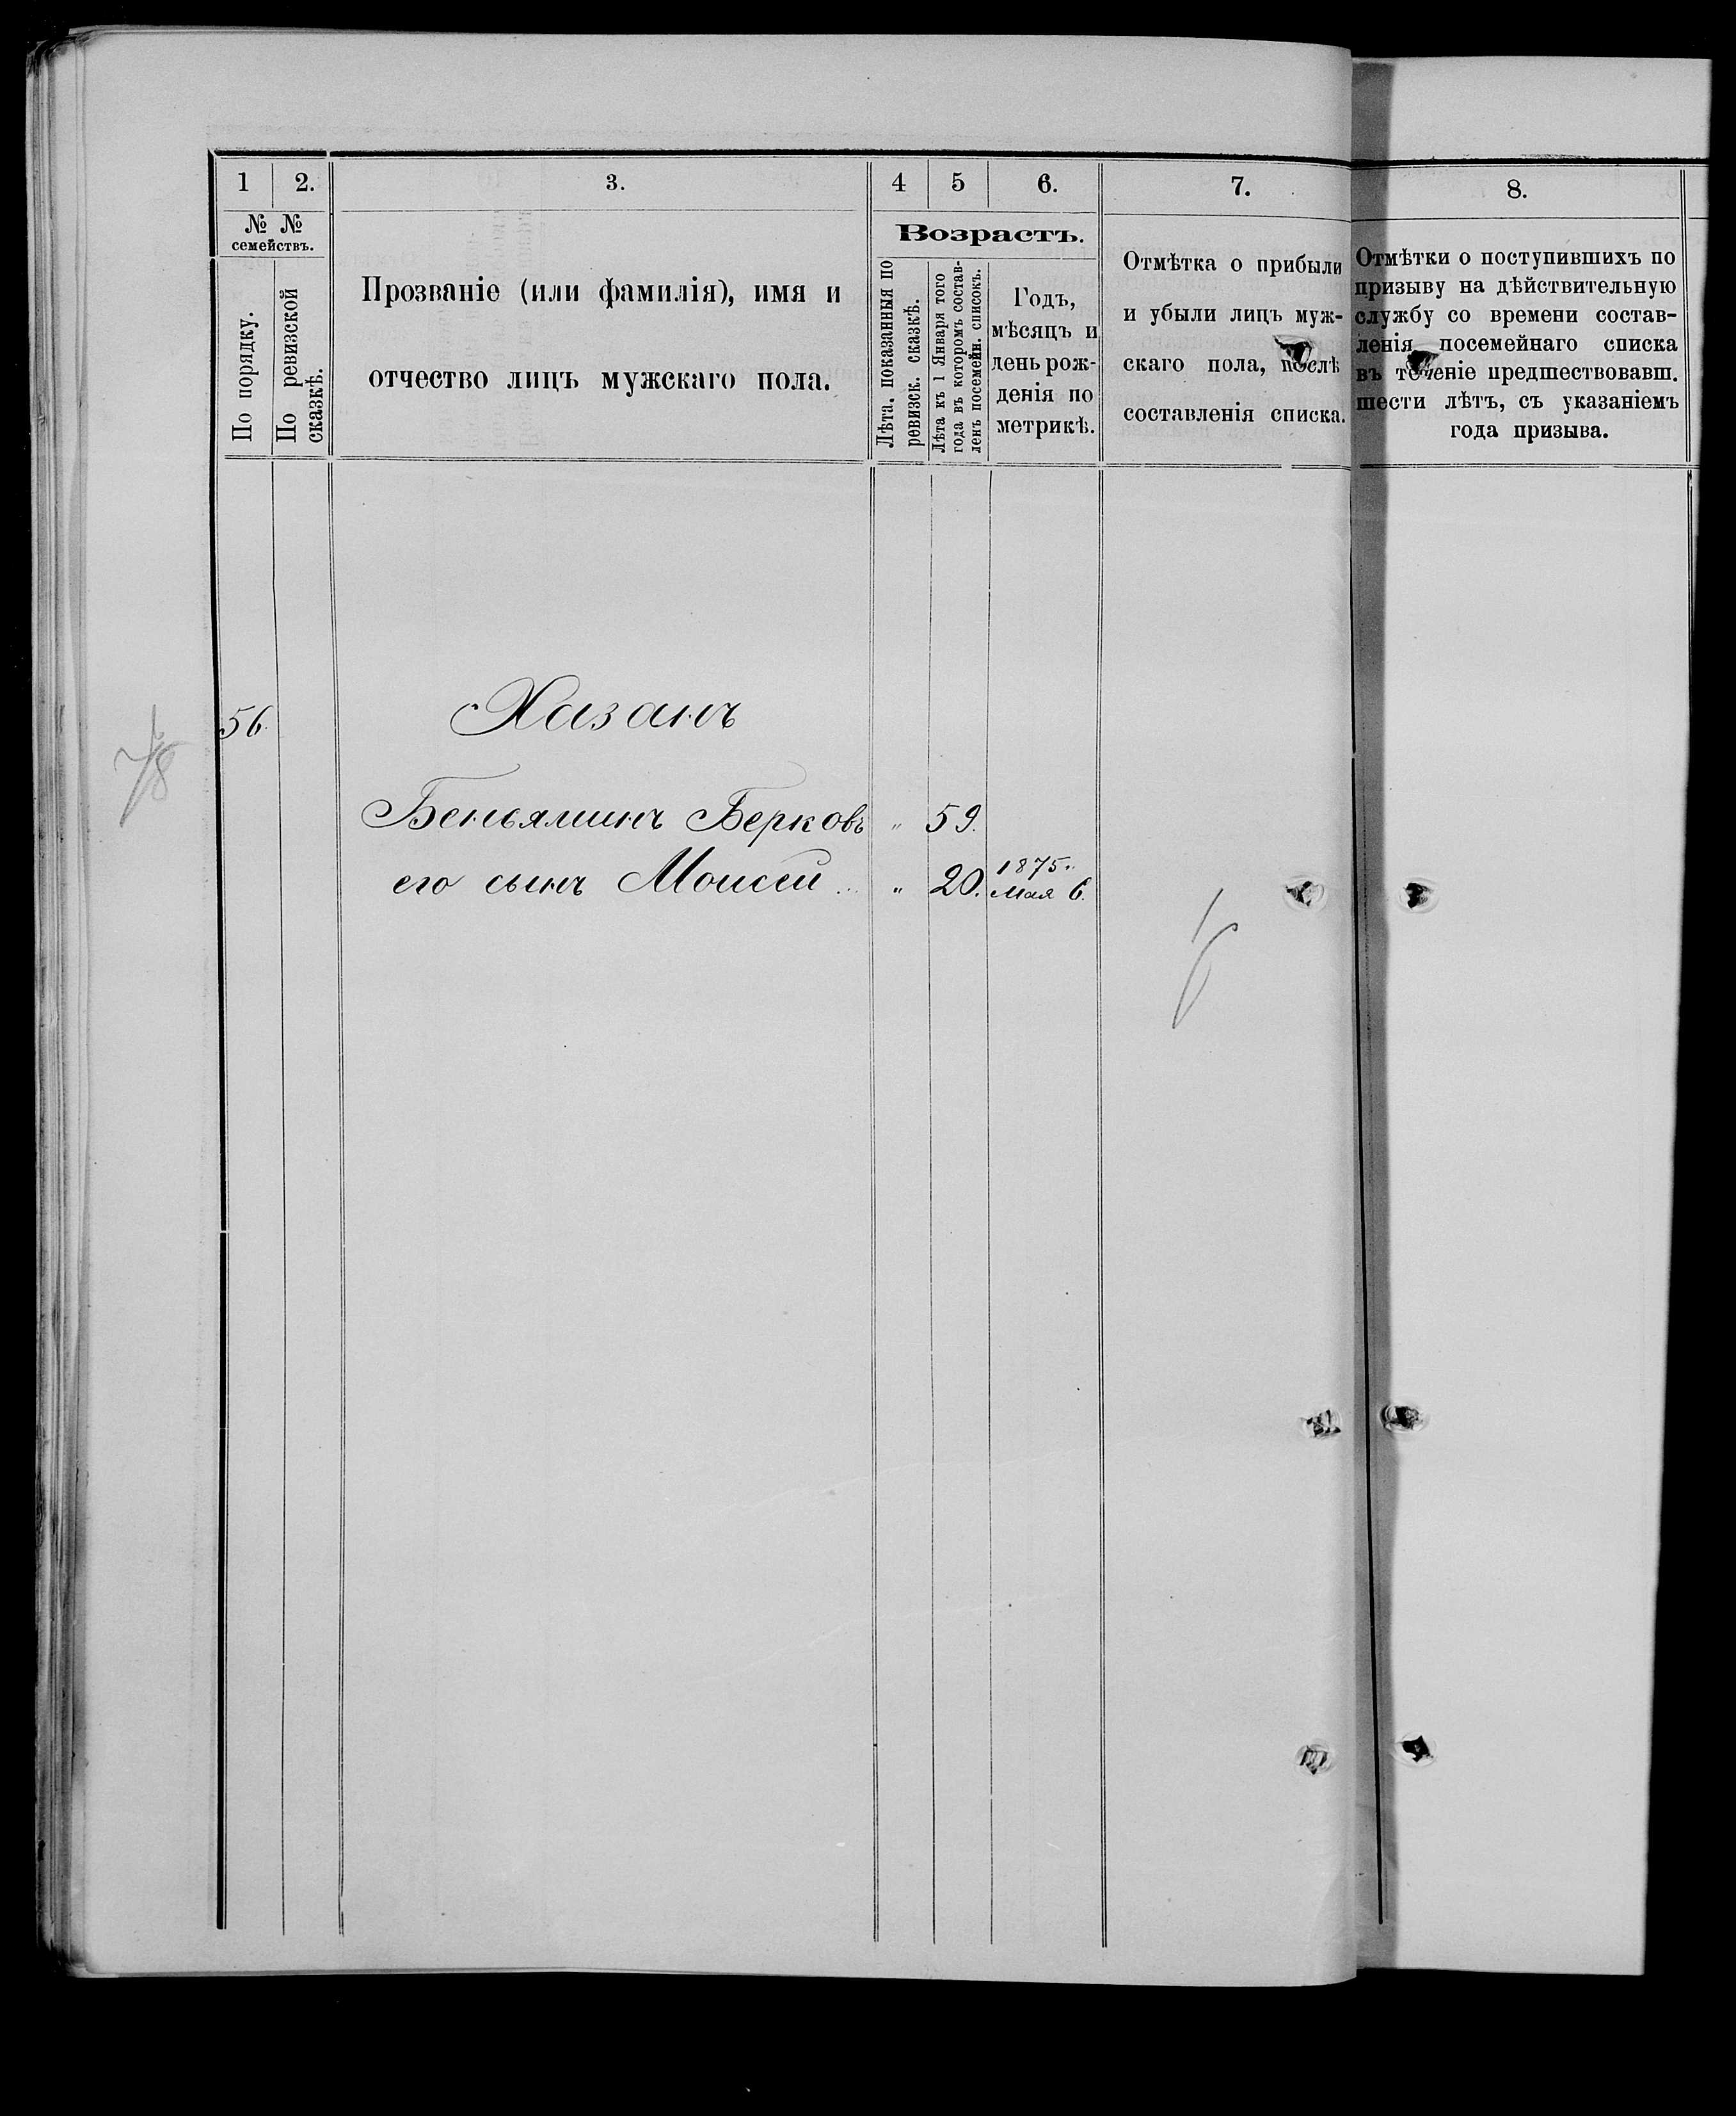 1 2. 3. 4 5 6. 7. 8.
№ №
семействъ.
По порядку.
По ревизской
сказкѣ.
Прозваніе (или фамилія), имя и
отчество лицъ мужскаго пола.
Возрастъ.
Лѣта, показанныя по
ревизск. сказкѣ.
Лѣта къ 1 Января того
года въ которомъ состав-
ленъ посемейн. списокъ.
Годъ,
мѣсяцъ и
день рож-
денія по
метрикѣ.
Отмѣтка о прибыли
и убыли лицъ муж-
скаго пола, послѣ
составленія списка.
Отмѣтки о поступившихъ по
призыву на дѣйствительную
службу со времени состав-
ленія посемейнаго списка
въ теченіе предшествовавш.
шести лѣтъ, съ указаніемъ
года призыва.
56. Хазанъ
Беньяминъ Берковъ " 59.
его сынъ Моисей " 20. 1875.
Мая 6.